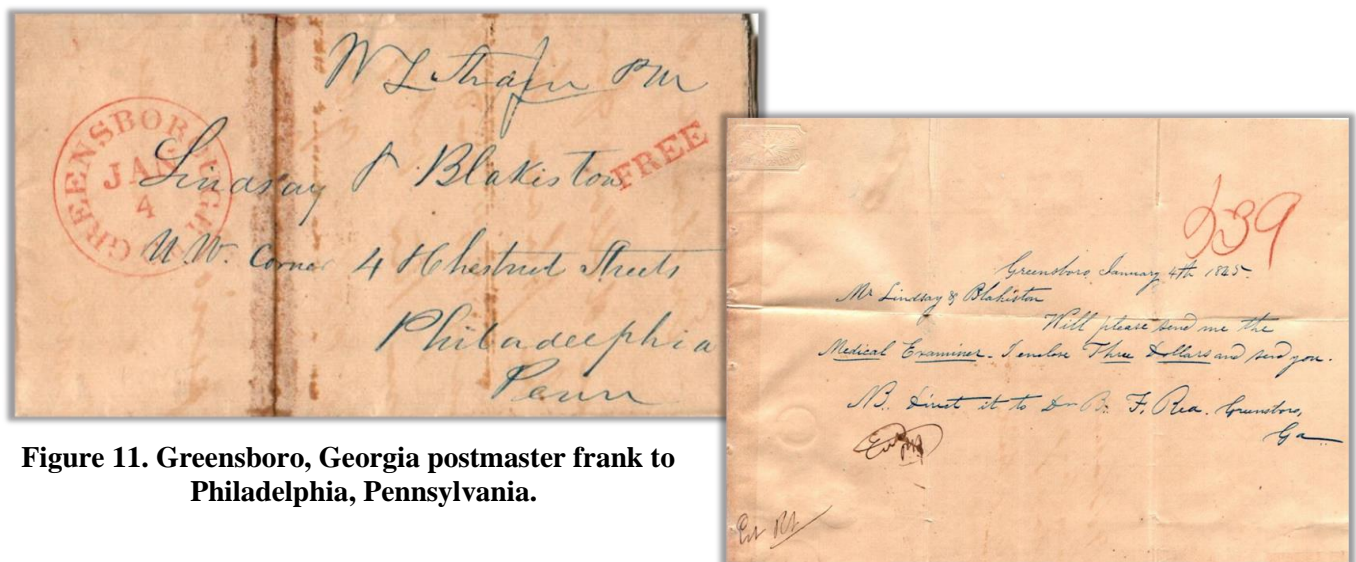 W L Strain PM
GREENSBOROUGH
JAN
4
FREE
Lindsay & Blakiston
N.W. Corner 4 & Chestnut Streets
Philadeelphia
Penn
Figure 11. Greensboro, Georgia postmaster frank to
Philadelphia, Pennsylvania.
239
Greensboro January 4th 1845
Mr Lindsay & Blakiston
Will please send me the
Medical Examiner. I enclose Three Dollars and send you.
NB. Direct it to Dr B. F. Rea. Greensboro,
Ga